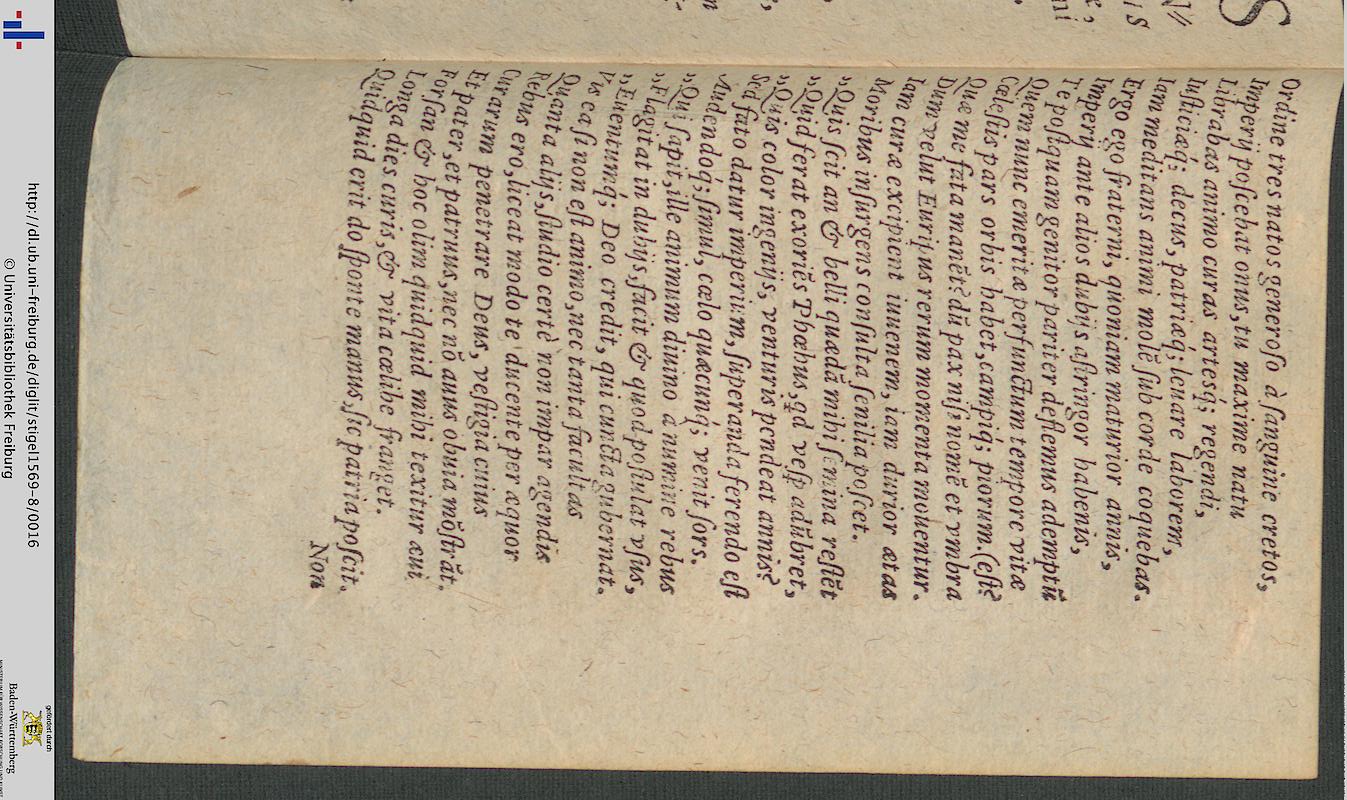 Ordine tres natos generoso à sanguine cretos,
Imperij poscebat onus, tu maxime natu
Librabas animo curas artesq́; regendi,
Iusticiæq́; decus, patriæq́; leuare laborem,
Iam meditans animi molē sub corde coquebas.
Ergo ego fraterni, quoniam maturior annis,
Imperij ante alios dubijs astringor habenis,
Te postquam genitor pariter deflemus ademptū
Quem nunc emeritæ perfunctum tempore vitæ
Cœlestis pars orbis habet, campiq́; piorum. (est?
Quæ me fata manēt? dū pax nisi nomē et vmbra
Dum velut Euripus rerum momenta mouentur.
Iam curæ excipient iuuenem, iam durior ætas
Moribus insurgens consulta senilia poscet.
„Quis scit an & belli quædā mihi semina restēt
„Quid ferat exoriēs Phœbus, qd vesp adūbret,
„Quis color ingenijs, venturis pendeat annis?
Sed fato datur imperium, superanda ferendo est
Audendoq́; simul, cœlo quæcunq́; venit sors.
„Qui sapit, ille animum diuino à numine rebus
„Flagitat in dubijs, facit & quod postulat vsus,
„Euentumq́; Deo credit, qui cuncta gubernat.
Vis ea si non est animo, nec tanta facultas
Quanta alijs, studio certè non impar agendis
Rebus ero, liceat modo te ducente per æquor
Curarum penetrare Deus, vestigia cuius
Et pater, et patruus, nec nō auus obuia mōstrāt.
Forsan & hoc olim quidquid mihi texitur æui
Longa dies curis, & vita cœlibe franget.
Quidquid erit do sponte manus, sic patria poscit.
Non
http://dl.ub.uni-freiburg.de/diglit/stigel1569-8/0016
© Universitätsbibliothek Freiburg
gefördert durch
Baden-Württemberg